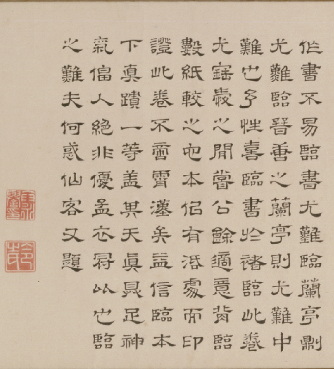 作書不易臨書尤難臨蘭亭則
尤難臨晉善之蘭亭則尤難中
難也予性喜臨書於諸臨此卷
尤寤寐之間嘗公餘適意背臨
數紙較之它本侶有活處而印
證此卷不啻霄漢矣益信臨本
下真蹟一等蓋其天真具足神
氣偪人絕非優孟衣冠以也臨
之難夫何惑仙客又題